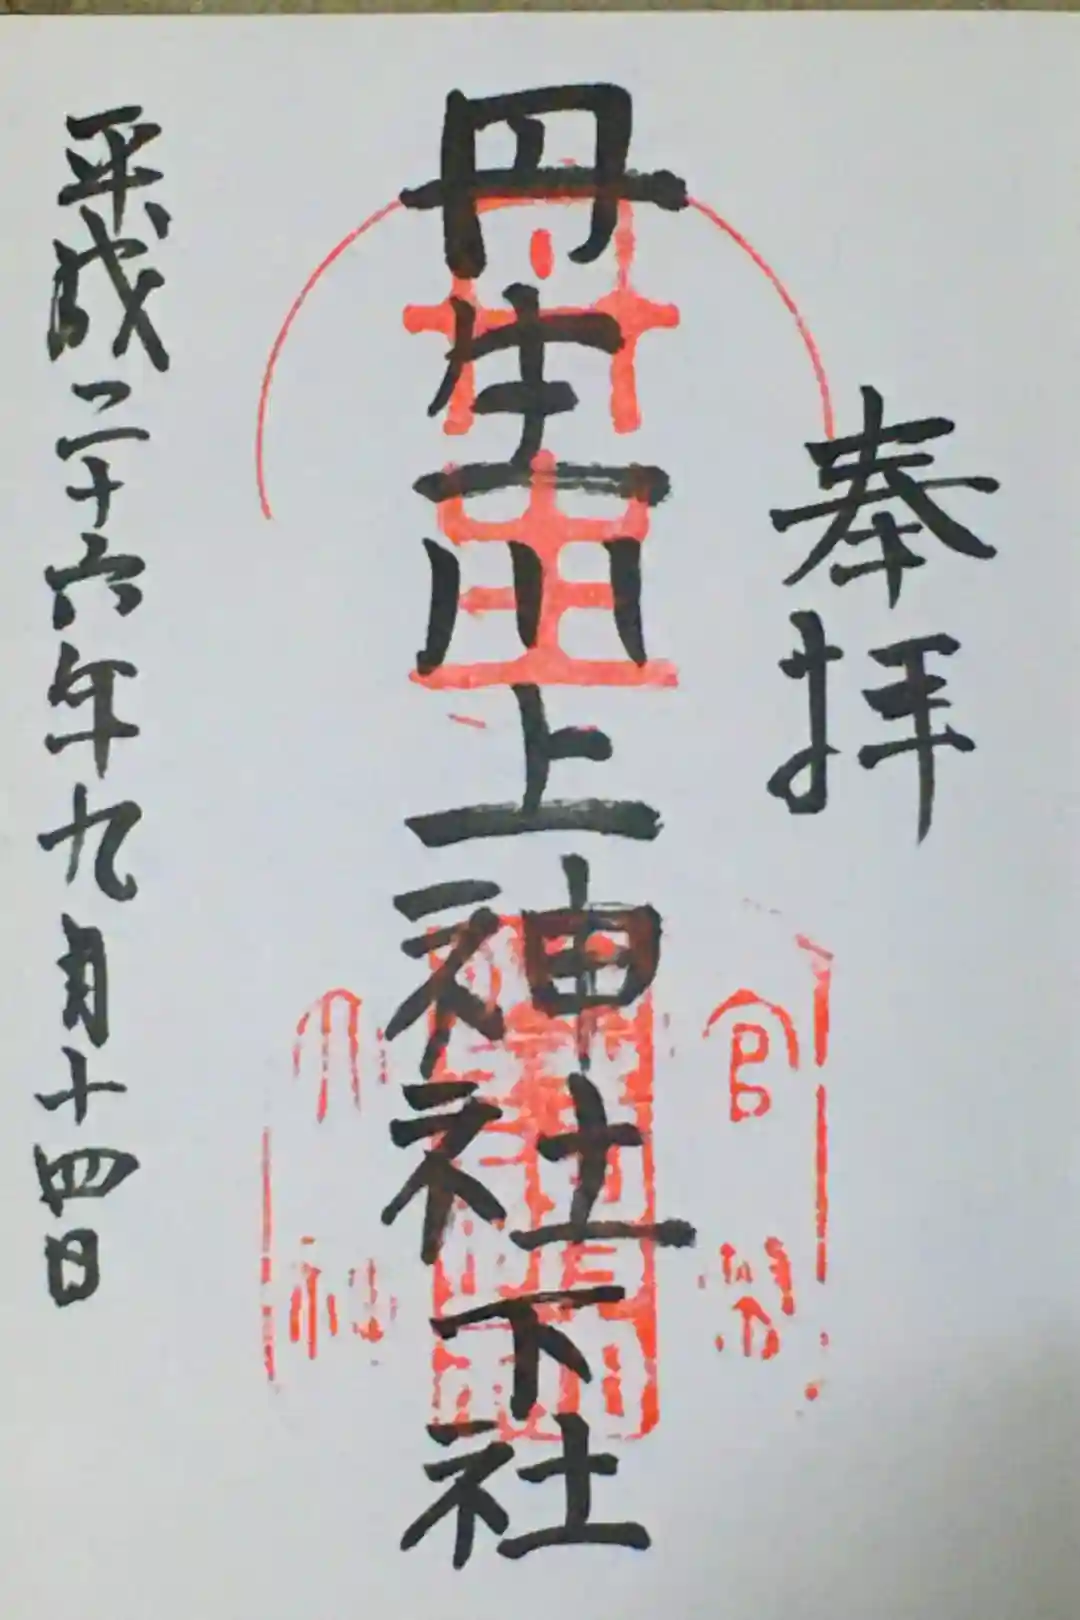 奉拝
丹生川上神社下社
平成二十六年九月十四日